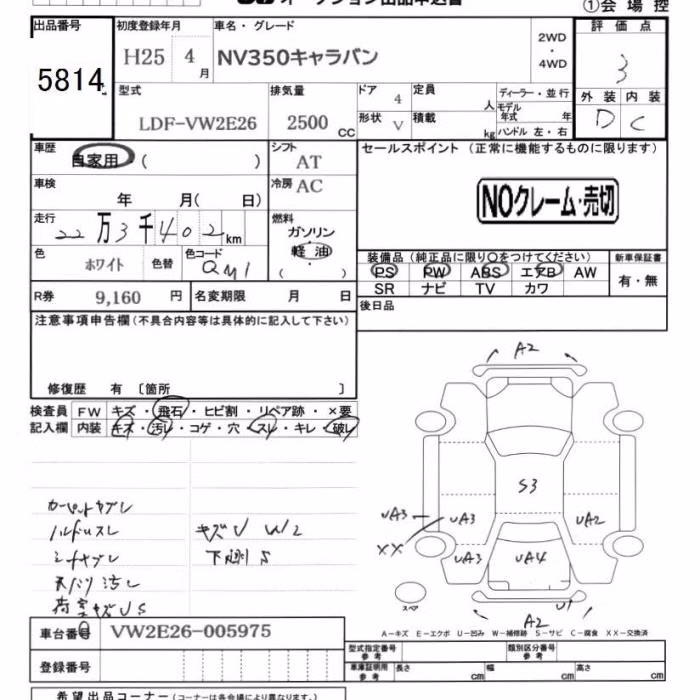 オークション出品申込書
①会場控
出品番号 初度登録年月 車名・グレード 評価点
5814 H25 4月 NV350キャラバン 2WD・4WD 3
型式 排気量 ドア 4 定員 人 ディーラー・並行 外装 内装
LDF-VW2E26 2500 CC 形状 V 積載 kg モデル年式 年 D C
ハンドル 左・右
車歴 自家用 ( ) シフト AT セールスポイント (正常に機能するものに限ります)
車検 年 月( 日) 冷房 AC
NOクレーム・売切
走行 22万3千402km 燃料 ガソリン 軽油 ( )
色 ホワイト 色替 色コード QM1
装備品 (純正品に限り○をつけてください) 新車保証書
PS PW ABS エアB AW 有・無
SR ナビ TV カワ
R券 9,160 円 名変期限 月 日 後日品
注意事項申告欄 (不具合内容等は具体的に記入して下さい)
修復歴 有 〔箇所 〕
検査員 FW キズ・飛石・ヒビ割・リペア跡・×要
記入欄 内装 キズ・汚れ・コゲ・穴・スレ・キレ・破れ
カーペットヤブレ
ハンドルスレ キズU W2
シートヤブレ 下廻S
天バリ汚レ
荷室キズUS
A2
S3
UA3 UA3 UA2
XX UA3 UA4
U1
スペア A2
A-キズ E-エクボ U-凹み W-補修跡 S-サビ C-腐食 XX-交換済
車台番号 VW2E26-005975
型式指定番号 参考 類別区分番号 参考
登録番号 車庫証明用 参考 長さ cm 幅 cm 高さ cm
希望出品コーナー (コーナーは各会場により異なります。)